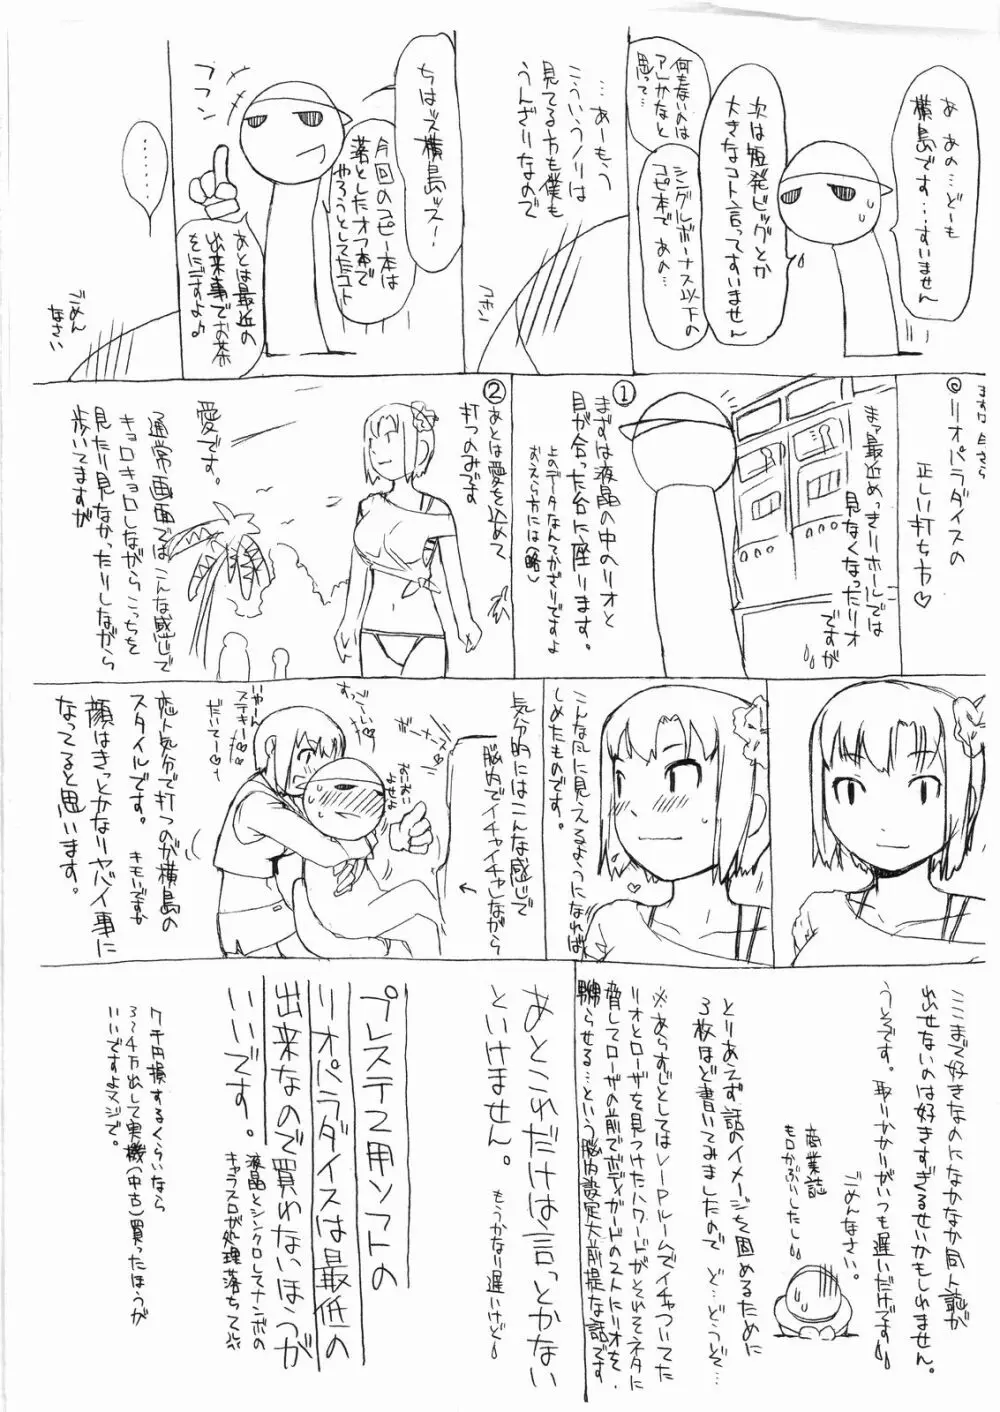 あ あの…どーも
横島です…すいません
次は短発ビッグとか
大きなコト言ってすいません
シングルボーナス以下の
コピ本で あの…
何もないのは
アレかなと
思って…
…あーもう
こういうノリは
見てる方も僕も
うんざりなので
コホン
ちはッス横島ッス!
今回のコピー本は
落としたオフ本で
やろうとしてたコト
フフン
あとは最近の
出来事でお茶
をにごすよ♪
……
ごめん
なさい
◎リオパラダイスの
正しい打ち方♡
まァ最近めっきりホールでは
見なくなったリオ
ですが
①
まずは液晶の中のリオと
目が合った台に座ります。
上のデータなんてかざりですよ
おえら方には(略)
②
あとは愛を込めて
打つのみです
愛です。
通常画面ではこんな感じで
キョロキョロしながらこっちを
見たり見なかったりしながら
歩いてますが
こんな風に見えるようになれば
しめたものです。
気分的にはこんな感じで
脳内でイチャイチャしながら
いやーん
ステキー♡
だいてー♡
恋人気分で打つのが横島の
スタイルです。
キモいですか
顔はきっとかなりヤバイ事に
なってると思います。
ここまで好きなのになかなか同人誌が
出せないのは好きすぎるせいかもしれません。
うそです。取りかかりがいつも遅いだけです
ごめんなさい。
商業誌
もロかぶりしたし
とりあえず話のイメージを固めるために
3枚ほど書いてみましたので ど…どうぞ…
※あらすじとしてはVIPルームでイチャついてた
リオとローザを見つけたハワードがそれをネタに
脅してローザの前でボディガードのストにリオを
嬲らせる…という脳内設定大前提な話です
あとこれだけは言っとかない
といけません。
もうかなり遅いけど
プレステ2用ソフトの
リオパラダイスは最低の
出来なので買わないほうが
いいです。
液晶とシンクロしてナンボの
キャラスロが処理落ちって
7千円損するくらいなら
3~4万出して実機(中古)買ったほうが
いいですよマジで。